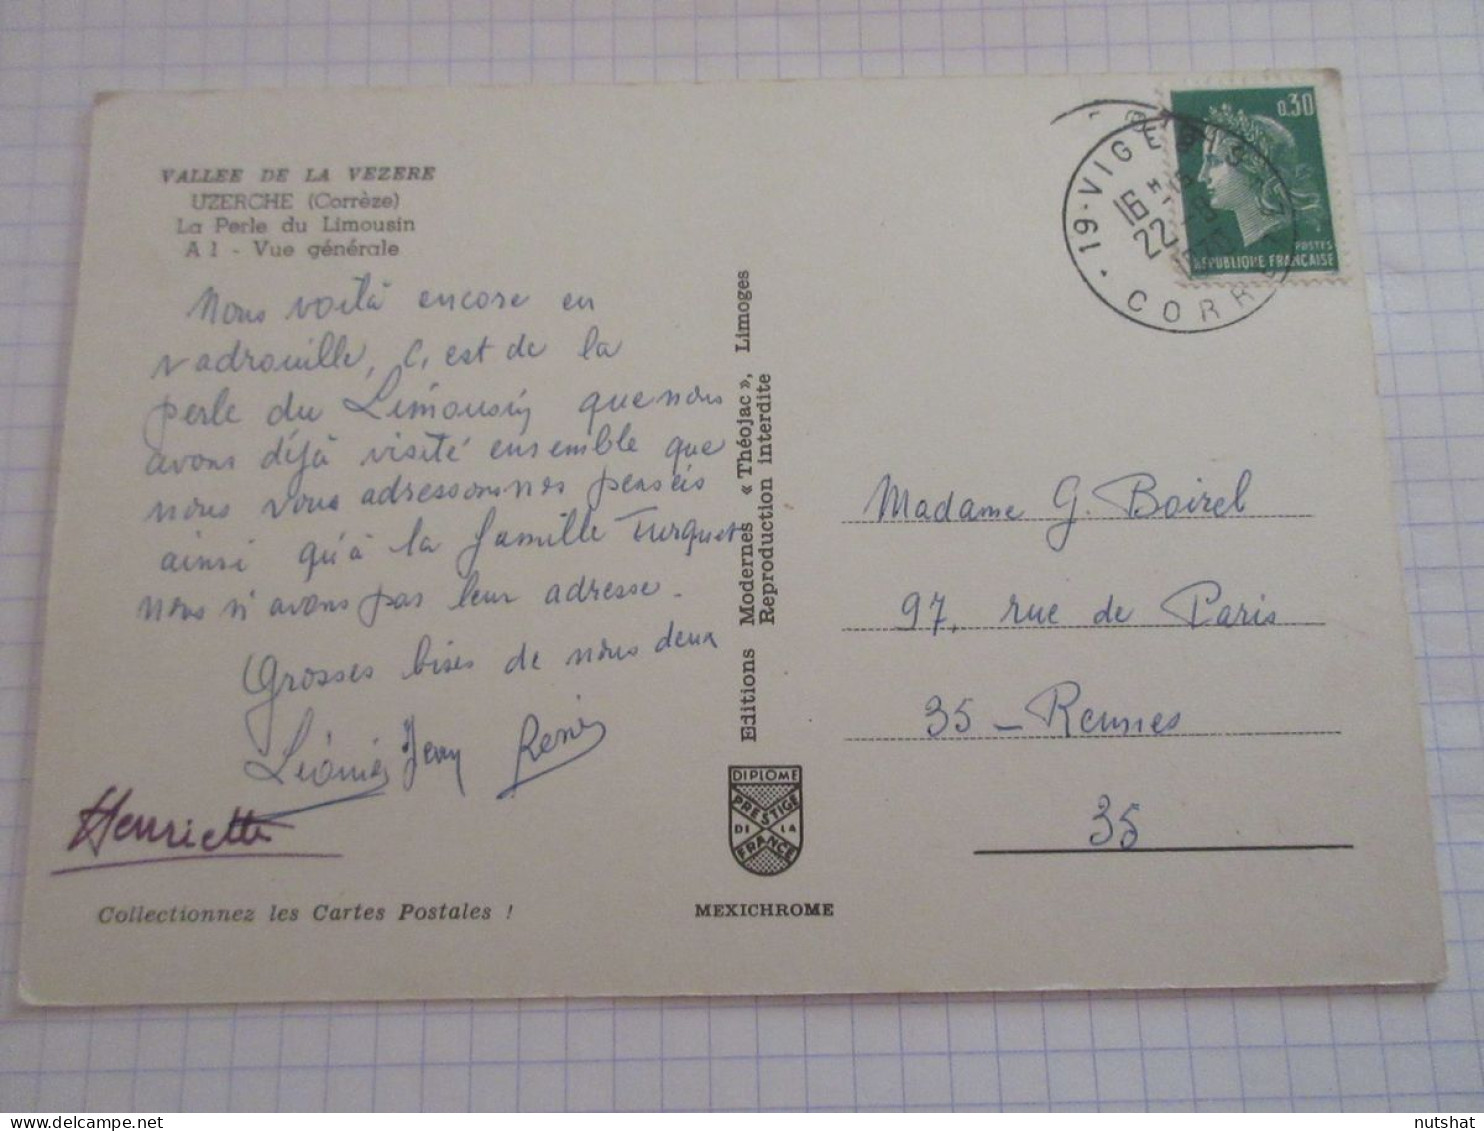 VALLEE DE LA VEZERE
UZERCHE (Corrèze)
La Perle du Limousin
A 1 - Vue générale
Nous voilà encore en
vadrouille, c, est de la
perle du Limousin que nous
avons déjà visité ensemble que
nous vous adressons nos pensées
ainsi qu'à la famille Turquet
nous n'avons pas leur adresse.
Grosses bises de nous deux
Léonie Jean René
Henriette
Collectionnez les Cartes Postales !
Editions Modernes « Théojac », Limoges
Reproduction interdite
DIPLOME
PRESTIGE
DE LA
FRANCE
MEXICHROME
0,30
POSTES
REPUBLIQUE FRANÇAISE
19 - VIGEOIS
16 H
22
1970
CORREZE
Madame G. Boirel
97, rue de Paris
35 - Rennes
35
nutshat